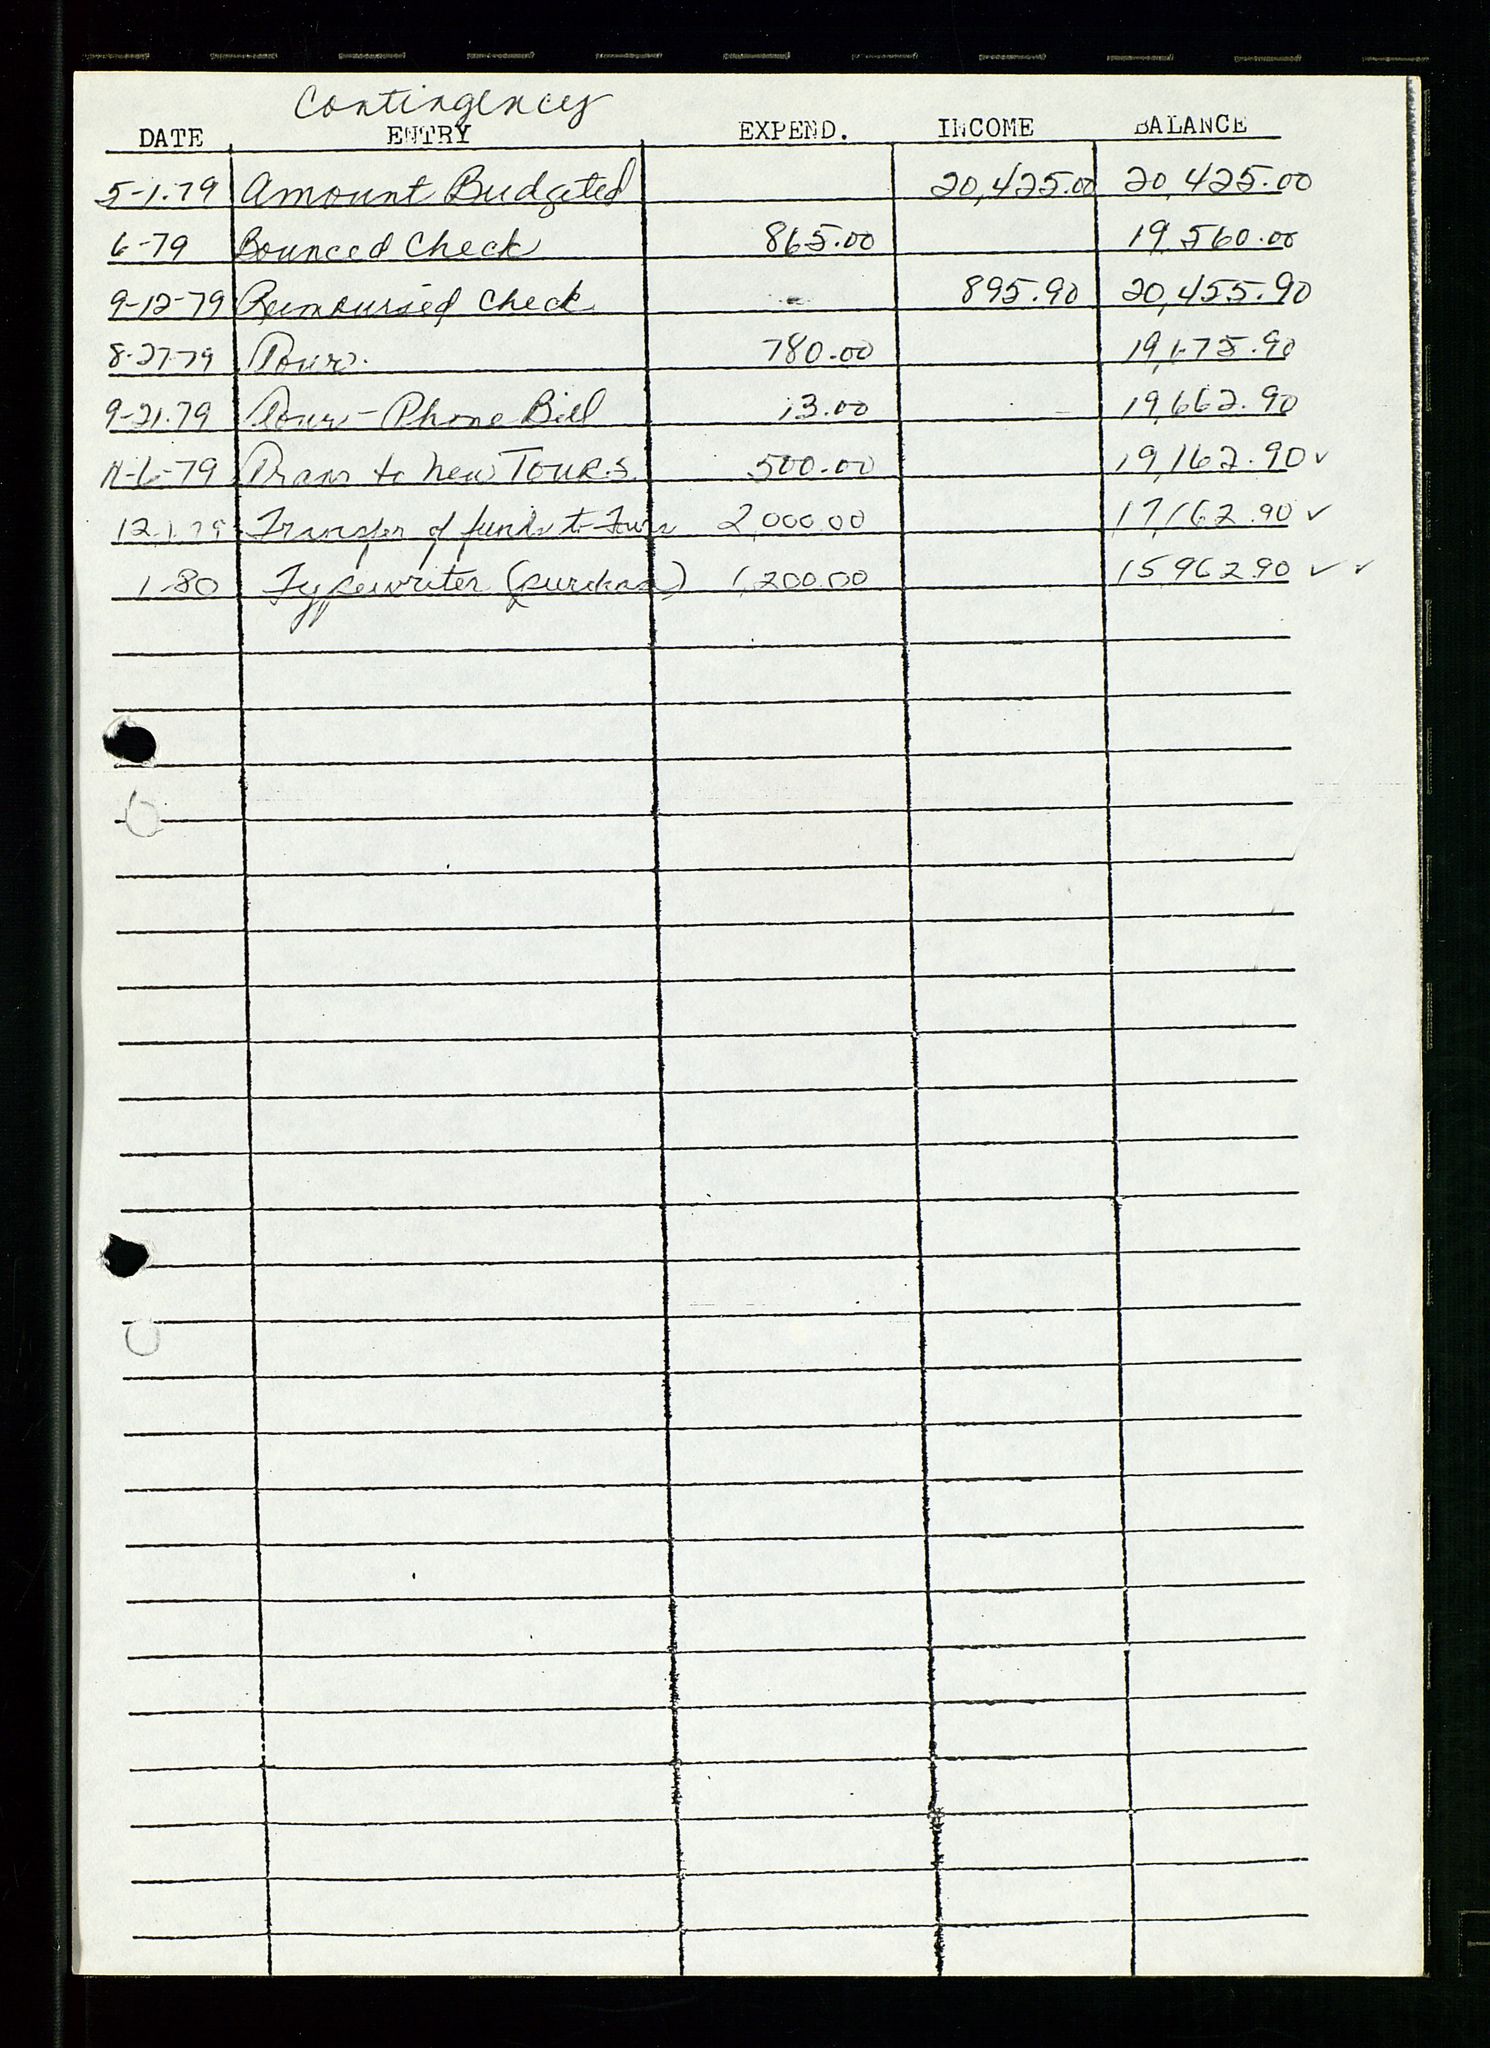 Contingency
DATE ENTRY EXPEND. INCOME BALANCE
5-1-79 Amount Budgeted 20,425.00 20,425.00
6-79 Bounced Check 865.00 19,560.00
9-12-79 Reimbursed Check 895.90 20,455.90
8-27-79 Tour. 780.00 19,675.90
9-21-79 Tour - Phone Bill 13.00 19,662.90
11-6-79 Trans to New TOURS. 500.00 19,162.90 ✓
12-1-79 Transfer of funds to Tours 2,000.00 17,162.90 ✓
1-80 Typewriter (purchase) 1,200.00 15962.90 ✓ ✓